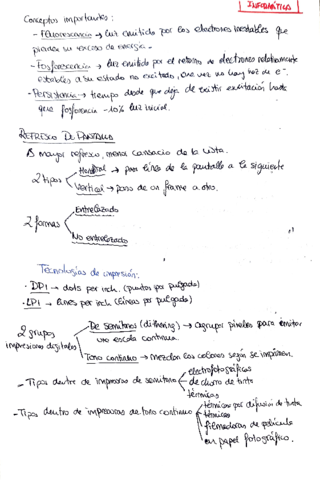 INFORMÁTICA
Conceptos importantes:
- Fluorescencia → luz emitida por los electrones inestables que
pierden su exceso de energía.
- Fosforescencia → luz emitida por el retorno de electrones relativamente
estables a su estado no excitado, una vez no hay haz de e⁻.
- Persistencia → tiempo desde que deja de existir excitación hasta
que fosforencia - 10% luz inicial.
REFRESCO DE PANTALLA
A mayor refresco, menor cansancio de la vista.
2 tipos
Horizontal → para línea de la pantalla a la siguiente
Vertical → para de un frame a otro.
2 formas
Entrelazado
No entrelazado
Tecnologías de impresión:
· DPI → dots per inch. (puntos por pulgada)
· LPI → lines per inch (líneas por pulgada)
2 grupos
impresiones digitales
De semitonos (dithering) → agrupa píxeles para emitar
una escala continua.
Tono continuo → mezclan los colores según se imprimen.
- Tipos dentro de impresoras de semitono
electrofotográficas
de chorro de tinta
térmicas
- Tipos dentro de impresoras de tono continuo
térmicas por difusión de tinta
térmicas
filmadoras de película
en papel fotográfico.